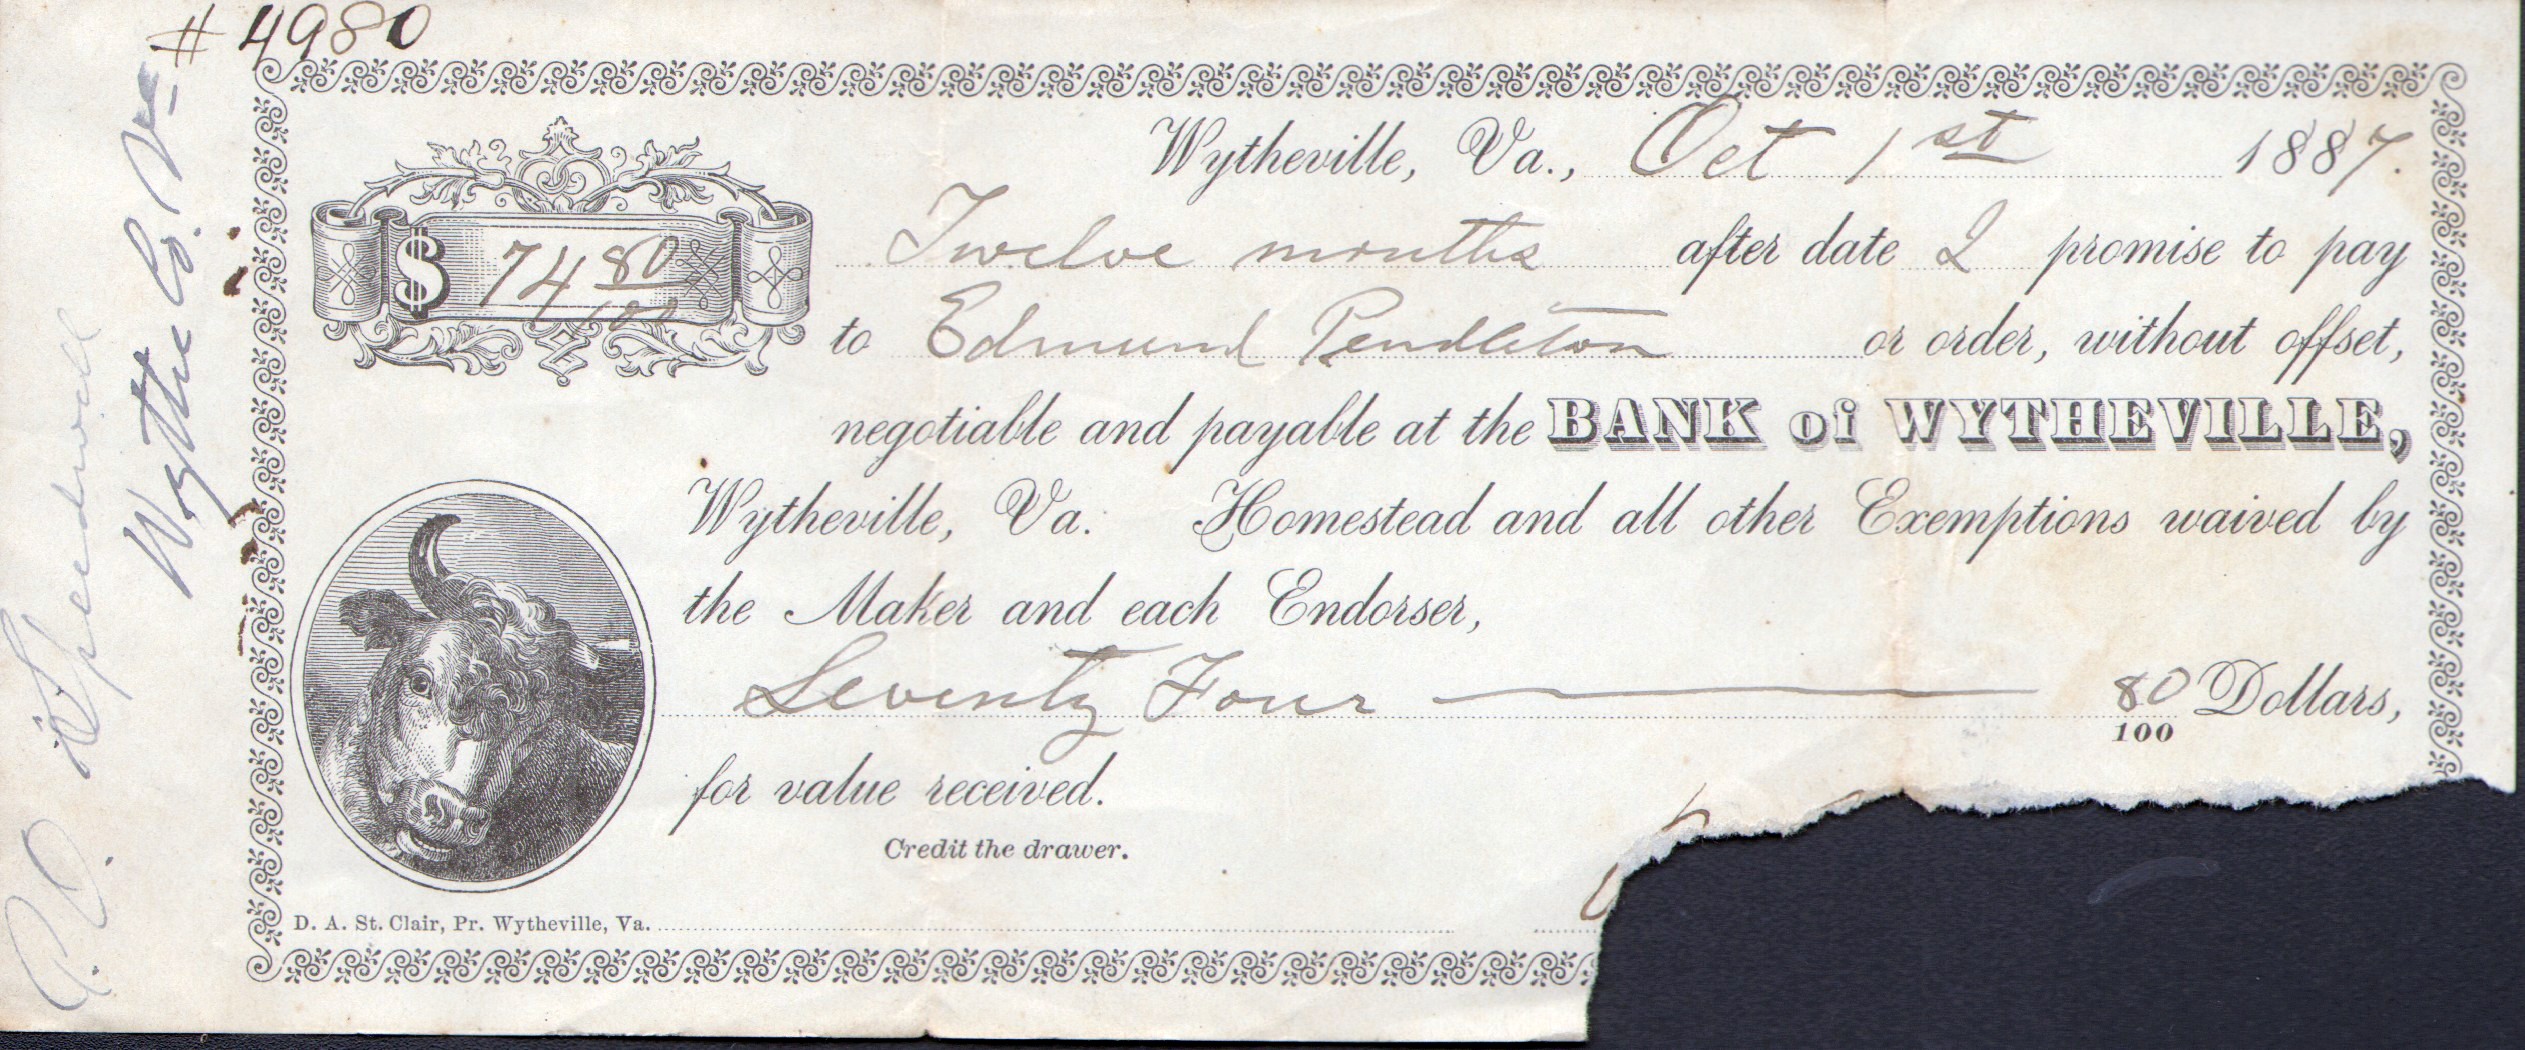 # 4980
Wytheville, Va., Oct 1st 1887.
$ 74 80/100
Twelve months after date I promise to pay
to Edmund Pendleton or order, without offset,
negotiable and payable at the BANK of WYTHEVILLE,
Wytheville, Va. Homestead and all other Exemptions waived by
the Maker and each Endorser,
Seventy Four 80/100 Dollars,
for value received.
Credit the drawer.
D. A. St. Clair, Pr. Wytheville, Va.
P.O. Speedwell
Wythe Co. Va